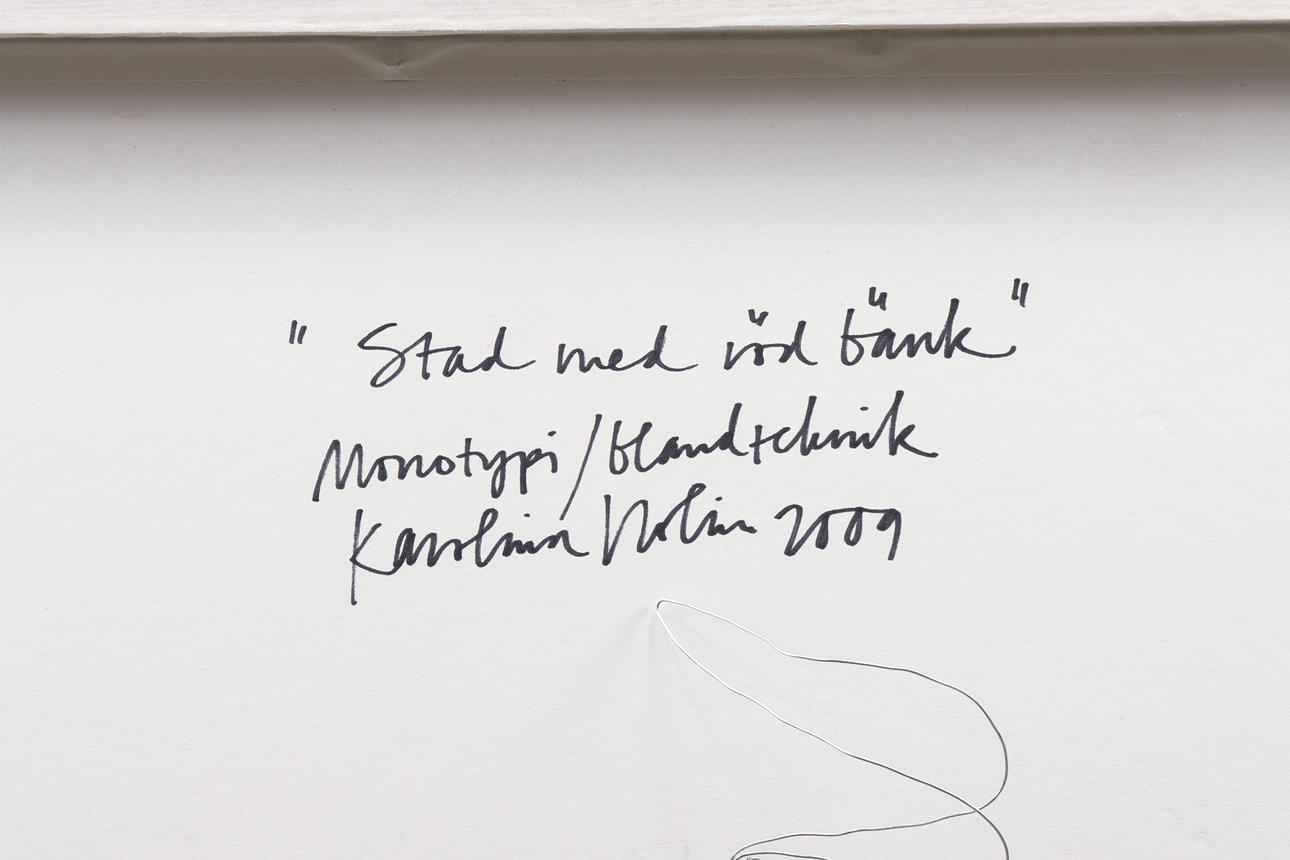 "Stad med röd bänk"
Monotypi/blandteknik
Karolina Nolin 2009